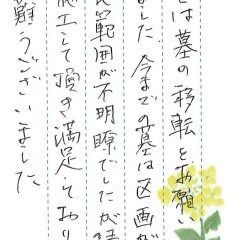 とは墓の移転をお願い
ました。今までの墓は区画が
範囲が不明瞭でしたが
施工して頂き満足しており
難うございました